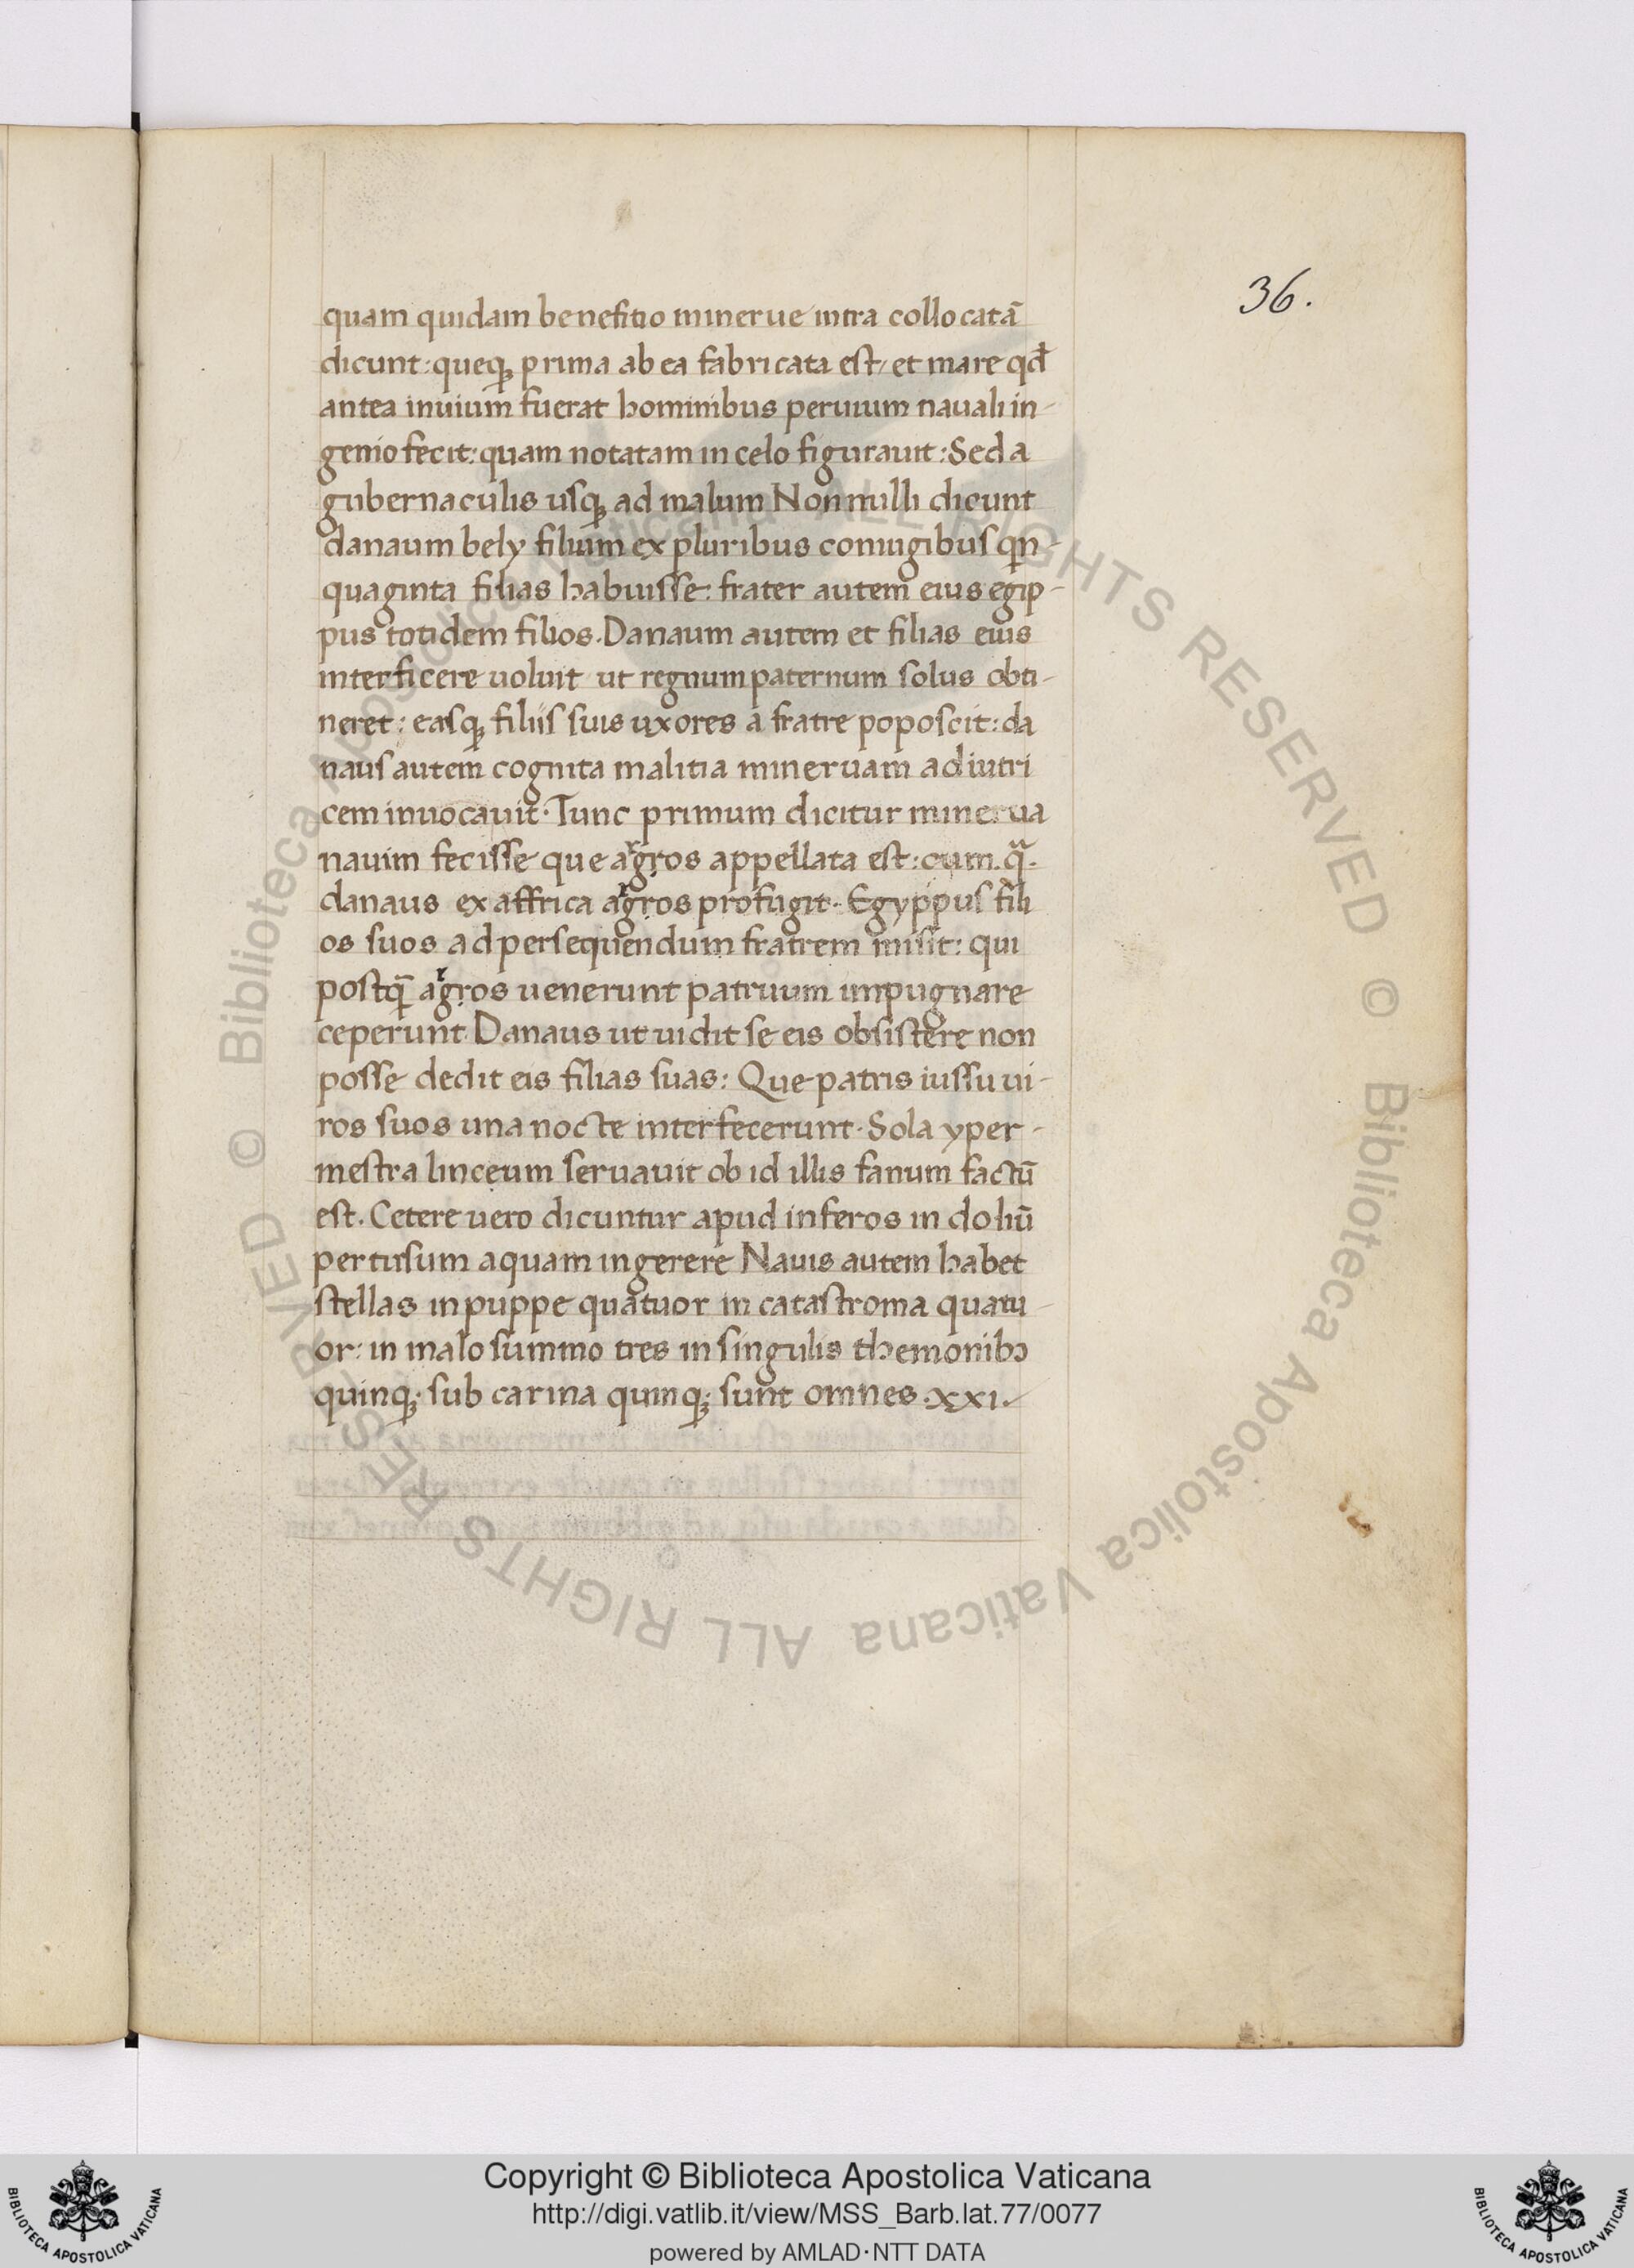 36.
quam quidam benefitio minerue intra collocatā
dicunt: queqꝫ prima ab ea fabricata est/ et mare qđ
antea inuium fuerat hominibus peruium nauali in-
genio fecit: quam notatam in celo figurauit: Sed a
gubernaculis usqꝫ ad malum Nonnulli dicunt
danaum bely filium ex pluribus coniugibus qn-
quaginta filias habuisse: frater autem eius egip-
pus totidem filios. Danaum autem et filias eius
interficere uoluit ut regnum paternum solus obti-
neret: easqꝫ filiis suis uxores a fratre poposcit: da
naus autem cognita malitia mineruam adiutri
cem inuocauit. Tunc primum dicitur minerua
nauim fecisse que argros appellata est: cum qͣ.
danaus ex affrica argros profugit. Egyppus fili
os suos ad persequendum fratrem misit: qui
postq̄ argros uenerunt patruum impugnare
ceperunt. Danaus ut uidit se eis obsistere non
posse dedit eis filias suas: Que patris iussu ui-
ros suos una nocte interfecerunt. Sola yper-
mestra linceum seruauit ob id illis fanum factū
est. Cetere uero dicuntur apud inferos in doliū
pertusum aquam ingerere Nauis autem habet
stellas in puppe quatuor in catastroma quatu-
or: in malo summo tres in singulis themonibꝰ
quinqꝫ. sub carina quinqꝫ. sunt omnes .xxi.
Copyright © Biblioteca Apostolica Vaticana
http://digi.vatlib.it/view/MSS_Barb.lat.77/0077
powered by AMLAD·NTT DATA
BIBLIOTECA APOSTOLICA VATICANA
BIBLIOTECA APOSTOLICA VATICANA
© Biblioteca Apostolica Vaticana ALL RIGHTS RESERVED
© Biblioteca Apostolica Vaticana ALL RIGHTS RESERVED